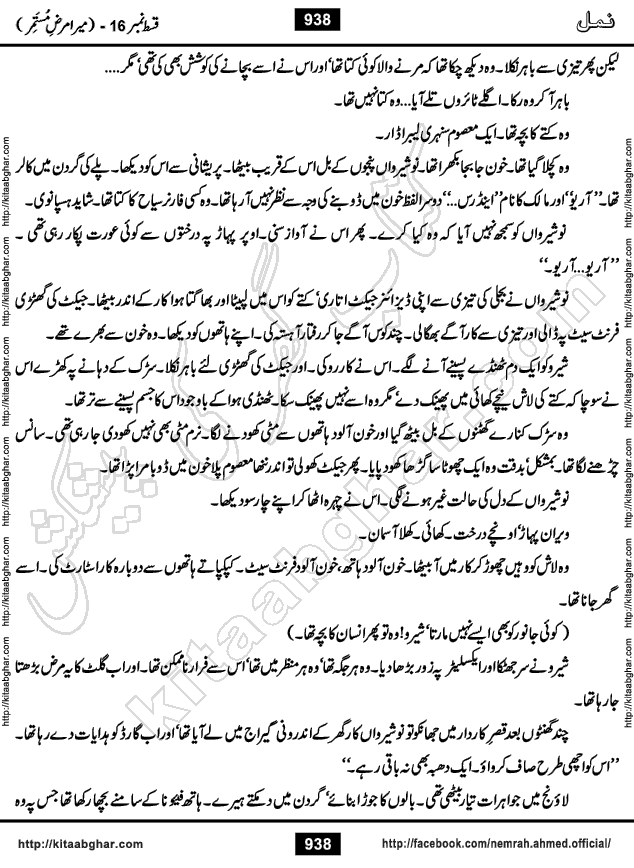 نمل
938
قسط نمبر 16 - (میرا مرضِ مُستَمِر)
لیکن پھر تیزی سے باہر نکلا۔ وہ دیکھ چکا تھا کہ مرنے والا کوئی کتا تھا‘ اور اس نے اسے بچانے کی کوشش بھی کی تھی‘ مگر....
باہر آ کر وہ رکا۔ اگلے ٹائروں تلے آیا... وہ کتا نہیں تھا۔
وہ کتے کا بچہ تھا۔ ایک معصوم سنہری لیبراڈار۔
وہ کچلا گیا تھا۔ خون جا بجا بکھرا تھا۔ نوشیرواں پنجوں کے بل اس کے قریب بیٹھا۔ پریشانی سے اس کو دیکھا۔ پلے کی گردن میں کالر
تھا۔ ’’آریو‘‘ اور مالک کا نام ’’اینڈرس...‘‘ دوسرا لفظ خون میں ڈوبنے کی وجہ سے نظر نہیں آ رہا تھا۔ وہ کسی فارنر سیاح کا کتا تھا۔ شاید ہسپانوی۔
نوشیرواں کو سمجھ نہیں آیا کہ وہ کیا کرے۔ پھر اس نے آواز سنی۔ اوپر پہاڑ پہ درختوں سے کوئی عورت پکار رہی تھی۔
’’آریو... آریو۔‘‘
نوشیرواں نے بجلی کی تیزی سے اپنی ڈیزائنر جیکٹ اتاری‘ کتے کو اس میں لپیٹا اور بھاگتا ہوا کار کے اندر بیٹھا۔ جیکٹ کی گھڑی
فرنٹ سیٹ پہ ڈالی اور تیزی سے کار آگے بھگا لی۔ چند کوس آگے جا کر رفتار آہستہ کی۔ اپنے ہاتھوں کو دیکھا۔ وہ خون سے بھرے تھے۔
شیرو کو ایک دم ٹھنڈے پسینے آنے لگے۔ اس نے کار روکی۔ اور جیکٹ کی گھڑی لئے باہر نکلا۔ سڑک کے دہانے پہ کھڑے اس
نے سوچا کہ کتے کی لاش نیچے کھائی میں پھینک دے‘ مگر وہ اسے نہیں پھینک سکا۔ ٹھنڈی ہوا کے باوجود اس کا جسم پسینے سے تر تھا۔
وہ سڑک کنارے گھٹنوں کے بل بیٹھ گیا اور خون آلود ہاتھوں سے مٹی کھودنے لگا۔ نرم مٹی بھی نہیں کھودی جا رہی تھی۔ سانس
چڑھنے لگا تھا۔ بمشکل‘ بدقت وہ ایک چھوٹا سا گڑھا کھود پایا۔ پھر جیکٹ کھولی تو اندر ننھا معصوم پلا خون میں ڈوبا مرا پڑا تھا۔
نوشیرواں کے دل کی حالت غیر ہونے لگی۔ اس نے چہرہ اٹھا کر اپنے چار سو دیکھا۔
ویران پہاڑ‘ اونچے درخت۔ کھائی۔ کھلا آسمان۔
وہ لاش کو وہیں چھوڑ کر کار میں آ بیٹھا۔ خون آلود ہاتھ‘ خون آلود فرنٹ سیٹ۔ کپکپاتے ہاتھوں سے دوبارہ کار اسٹارٹ کی۔ اسے
گھر جانا تھا۔
(کوئی جانور کو بھی ایسے نہیں مارتا‘ شیرو! وہ تو پھر انسان کا بچہ تھا۔)
شیرو نے سر جھٹکا اور ایکسلیٹر پہ زور بڑھا دیا۔ وہ ہر جگہ تھا‘ وہ ہر منظر میں تھا‘ اس سے فرار ناممکن تھا۔ اور اب گلٹ کا یہ مرض بڑھتا
جا رہا تھا۔
چند گھنٹوں بعد قصرِ کاردار میں جھانکو تو نوشیرواں کار گھر کے اندرونی گیراج میں لے آیا تھا‘ اور اب گارڈ کو ہدایات دے رہا تھا۔
’’اس کو اچھی طرح صاف کرواؤ۔ ایک دھبہ بھی نہ باقی رہے۔‘‘
لاؤنج میں جواہرات تیار بیٹھی تھی۔ بالوں کا جوڑا بنائے‘ گردن میں دمکتے ہیرے۔ ہاتھ فیئونا کے سامنے بچھا رکھا تھا جس پہ وہ
http://kitaabghar.com
938
http://facebook.com/nemrah.ahmed.official/
http://kitaabghar.com
http://kitaabghar.com
http://kitaabghar.com
http://kitaabghar.com
http://kitaabghar.com
http://kitaabghar.com
http://kitaabghar.com
http://kitaabghar.com
http://kitaabghar.com
http://kitaabghar.com
http://kitaabghar.com
http://kitaabghar.com
کتاب گھر کی پیشکش
kitaabghar.com